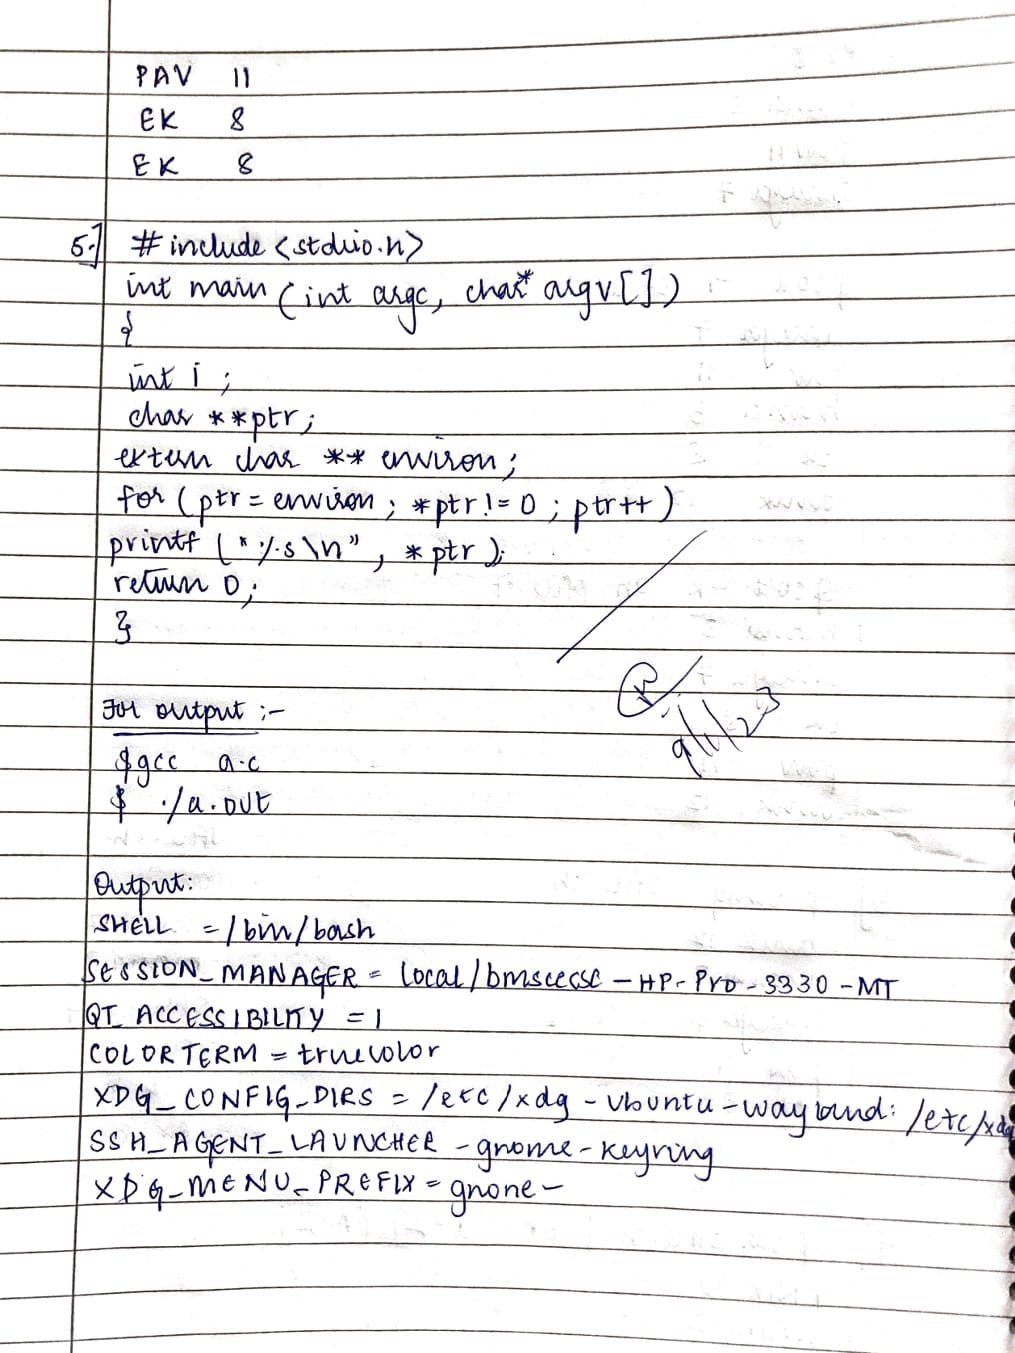 PAV 11
EK 8
EK 8
5.] #include <stdio.h>
int main (int argc, char* argv[])
{
int i ;
char **ptr;
extern char ** environ ;
for (ptr = environ ; *ptr != 0 ; ptr++)
printf ("%s\n", *ptr);
return 0;
}
For output :-
$gcc a.c
$ ./a.out
9/1/23
Output:
SHELL = /bin/bash
SESSION_MANAGER = local/bmscecse - HP- Pro - 3330 - MT
QT_ACCESSIBILITY = 1
COLORTERM = truecolor
XDG_CONFIG_DIRS = /etc/xdg - ubuntu - wayland: /etc/xdg
SSH_AGENT_LAUNCHER - gnome - keyring
XDG_MENU_PREFIX = gnone -